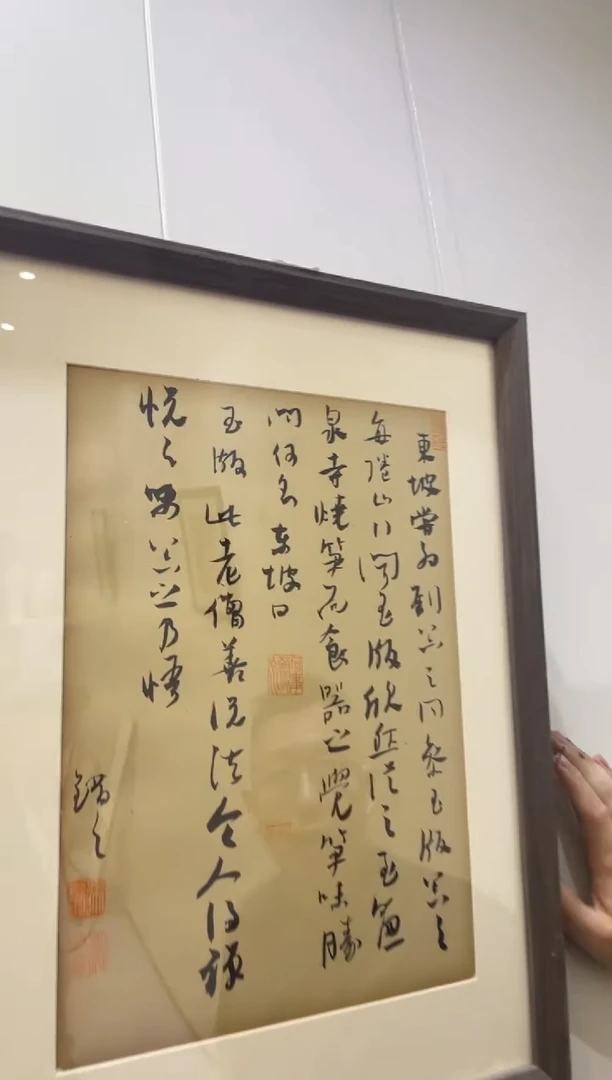 東坡嘗為劉器之同參玉版器之
每倦山行聞玉版欣然從之至廉
泉寺燒筍而食器之覺筍味勝
問何名東坡曰
玉版此老僧善說法令人得禪
悅之味器之乃悟
鐇之